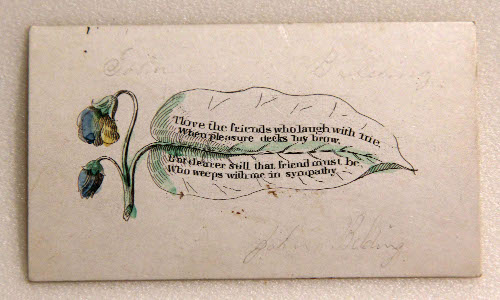 John
I love the friends who laugh with me,
When pleasure decks my brow,
But dearer still that friend must be,
Who weeps with me in sympathy.
John